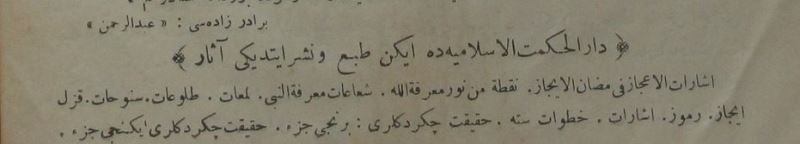 برادر زاده‌سی : « عبدالرحمن »
﴿ دار الحكمت الاسلاميه‌ده ايكن طبع ونشر ايتديكى آثار ﴾
اشارات الاعجاز فى مضان الايجاز. نقطة من نور معرفة الله . شعاعات معرفة النبى. لمعات . طلوعات. سنوحات. قزل
ايجاز. رموز. اشارات . خطوات سته . حقيقت چكردكلرى : برنجى جزء . حقيقت چكردكلرى ايكنجى جزء .